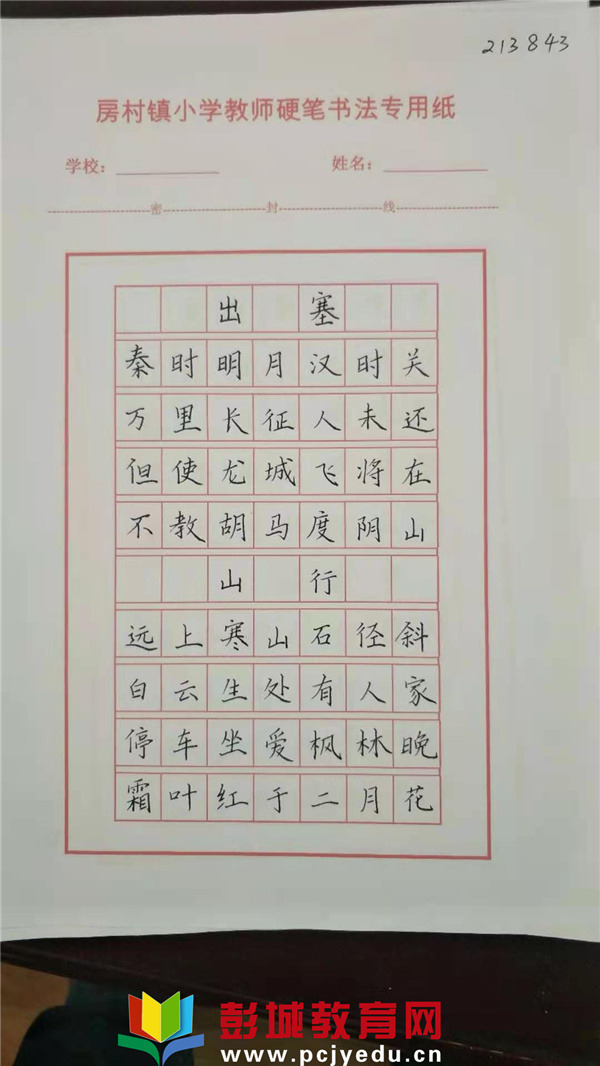 213843
房村镇小学教师硬笔书法专用纸
学校：__________ 姓名：__________
密 封 线
出塞
秦时明月汉时关
万里长征人未还
但使龙城飞将在
不教胡马度阴山
山行
远上寒山石径斜
白云生处有人家
停车坐爱枫林晚
霜叶红于二月花
彭城教育网
www.pcjyedu.cn